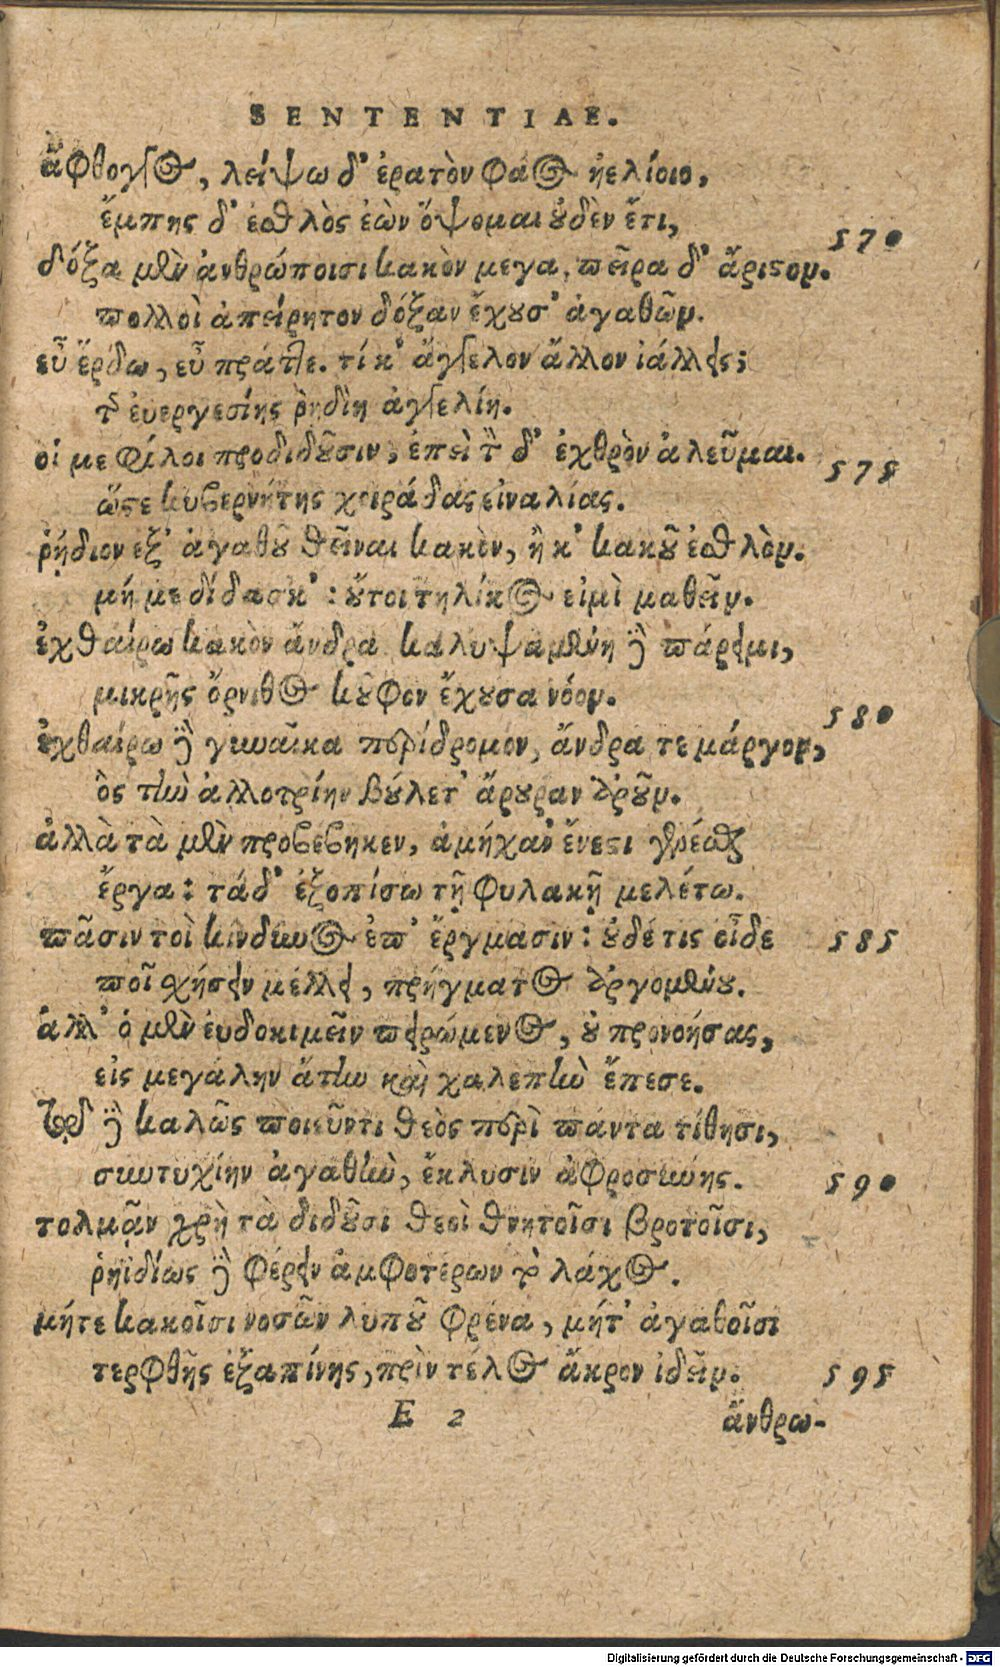 SENTENTIAE.
ἄφθογγος, λείψω δ' ἐρατὸν φάος ἠελίοιο,
ἔμπης δ' ἐσθλὸς ἐὼν ὄψομαι οὐδὲν ἔτι,
570
δόξα μὲν ἀνθρώποισι κακὸν μεγα, πεῖρα δ' ἄριστον.
πολλοὶ ἀπείρητον δόξαν ἔχουσ' ἀγαθῶν.
εὖ ἔρδω, εὖ πράττε. τί κ' ἄγγελον ἄλλον ἰάλλεις;
τῆς ἐυεργεσίης ῥηδίη ἀγγελίη.
οἵ με φίλοι προδιδοῦσιν, ἐπεὶ τὸν δ' ἐχθρὸν ἀλεῦμαι.
575
ὥστε κυβερνήτης χοιράδας εἰναλίας.
ῥῄδιον ἐξ' ἀγαθοῦ θεῖναι κακὸν, ἢ κ' κακοῦ ἐσθλὸν.
μή με δίδασκ': οὔτοι τηλίκος εἰμὶ μαθεῖν.
ἐχθαίρω κακὸν ἄνδρα καλυψαμένη δὲ πάρειμι,
μικρῆς ὄρνιθος κοῦφον ἔχουσα νόον.
580
ἐχθαίρω δὲ γυναῖκα περίδρομον, ἄνδρα τε μάργον,
ὃς τὴν ἀλλοτρίην βούλετ' ἄρουραν ἀροῦν.
ἀλλὰ τὰ μὲν προβέβηκεν, ἀμήχανον ἔνεστι γενέσθαι
ἔργα: τάδ' ἐξοπίσω τῇ φυλακῇ μελέτω.
πᾶσιν τοὶ κίνδυνος ἐπ' ἔργμασιν: οὐδέ τις οἶδε
585
ποῖ σχήσειν μέλλει, πρήγματος ἀρχομένου.
ἀλλ' ὁ μὲν ἐυδοκιμεῖν πειρώμενος, οὐ προνοήσας,
εἰς μεγάλην ἄτην καὶ χαλεπὴν ἔπεσε.
τῷ δὲ καλῶς ποιεῦντι θεὸς περὶ πάντα τίθησι,
συντυχίην ἀγαθὴν, ἔκλυσιν ἀφροσύνης.
590
τολμᾷν χρὴ τὰ διδοῦσι θεοὶ θνητοῖσι βροτοῖσι,
ῥηϊδίως δὲ φέρειν ἀμφοτέρων τὸ λάχος.
μήτε κακοῖσι νοσῶν λυποῦ φρένα, μήτ' ἀγαθοῖσι
τερφθῇς ἐξαπίνης, πρὶν τέλος ἄκρον ἰδεῖν.
595
E 2
ἄνθρω-
Digitalisierung gefördert durch die Deutsche Forschungsgemeinschaft - DFG